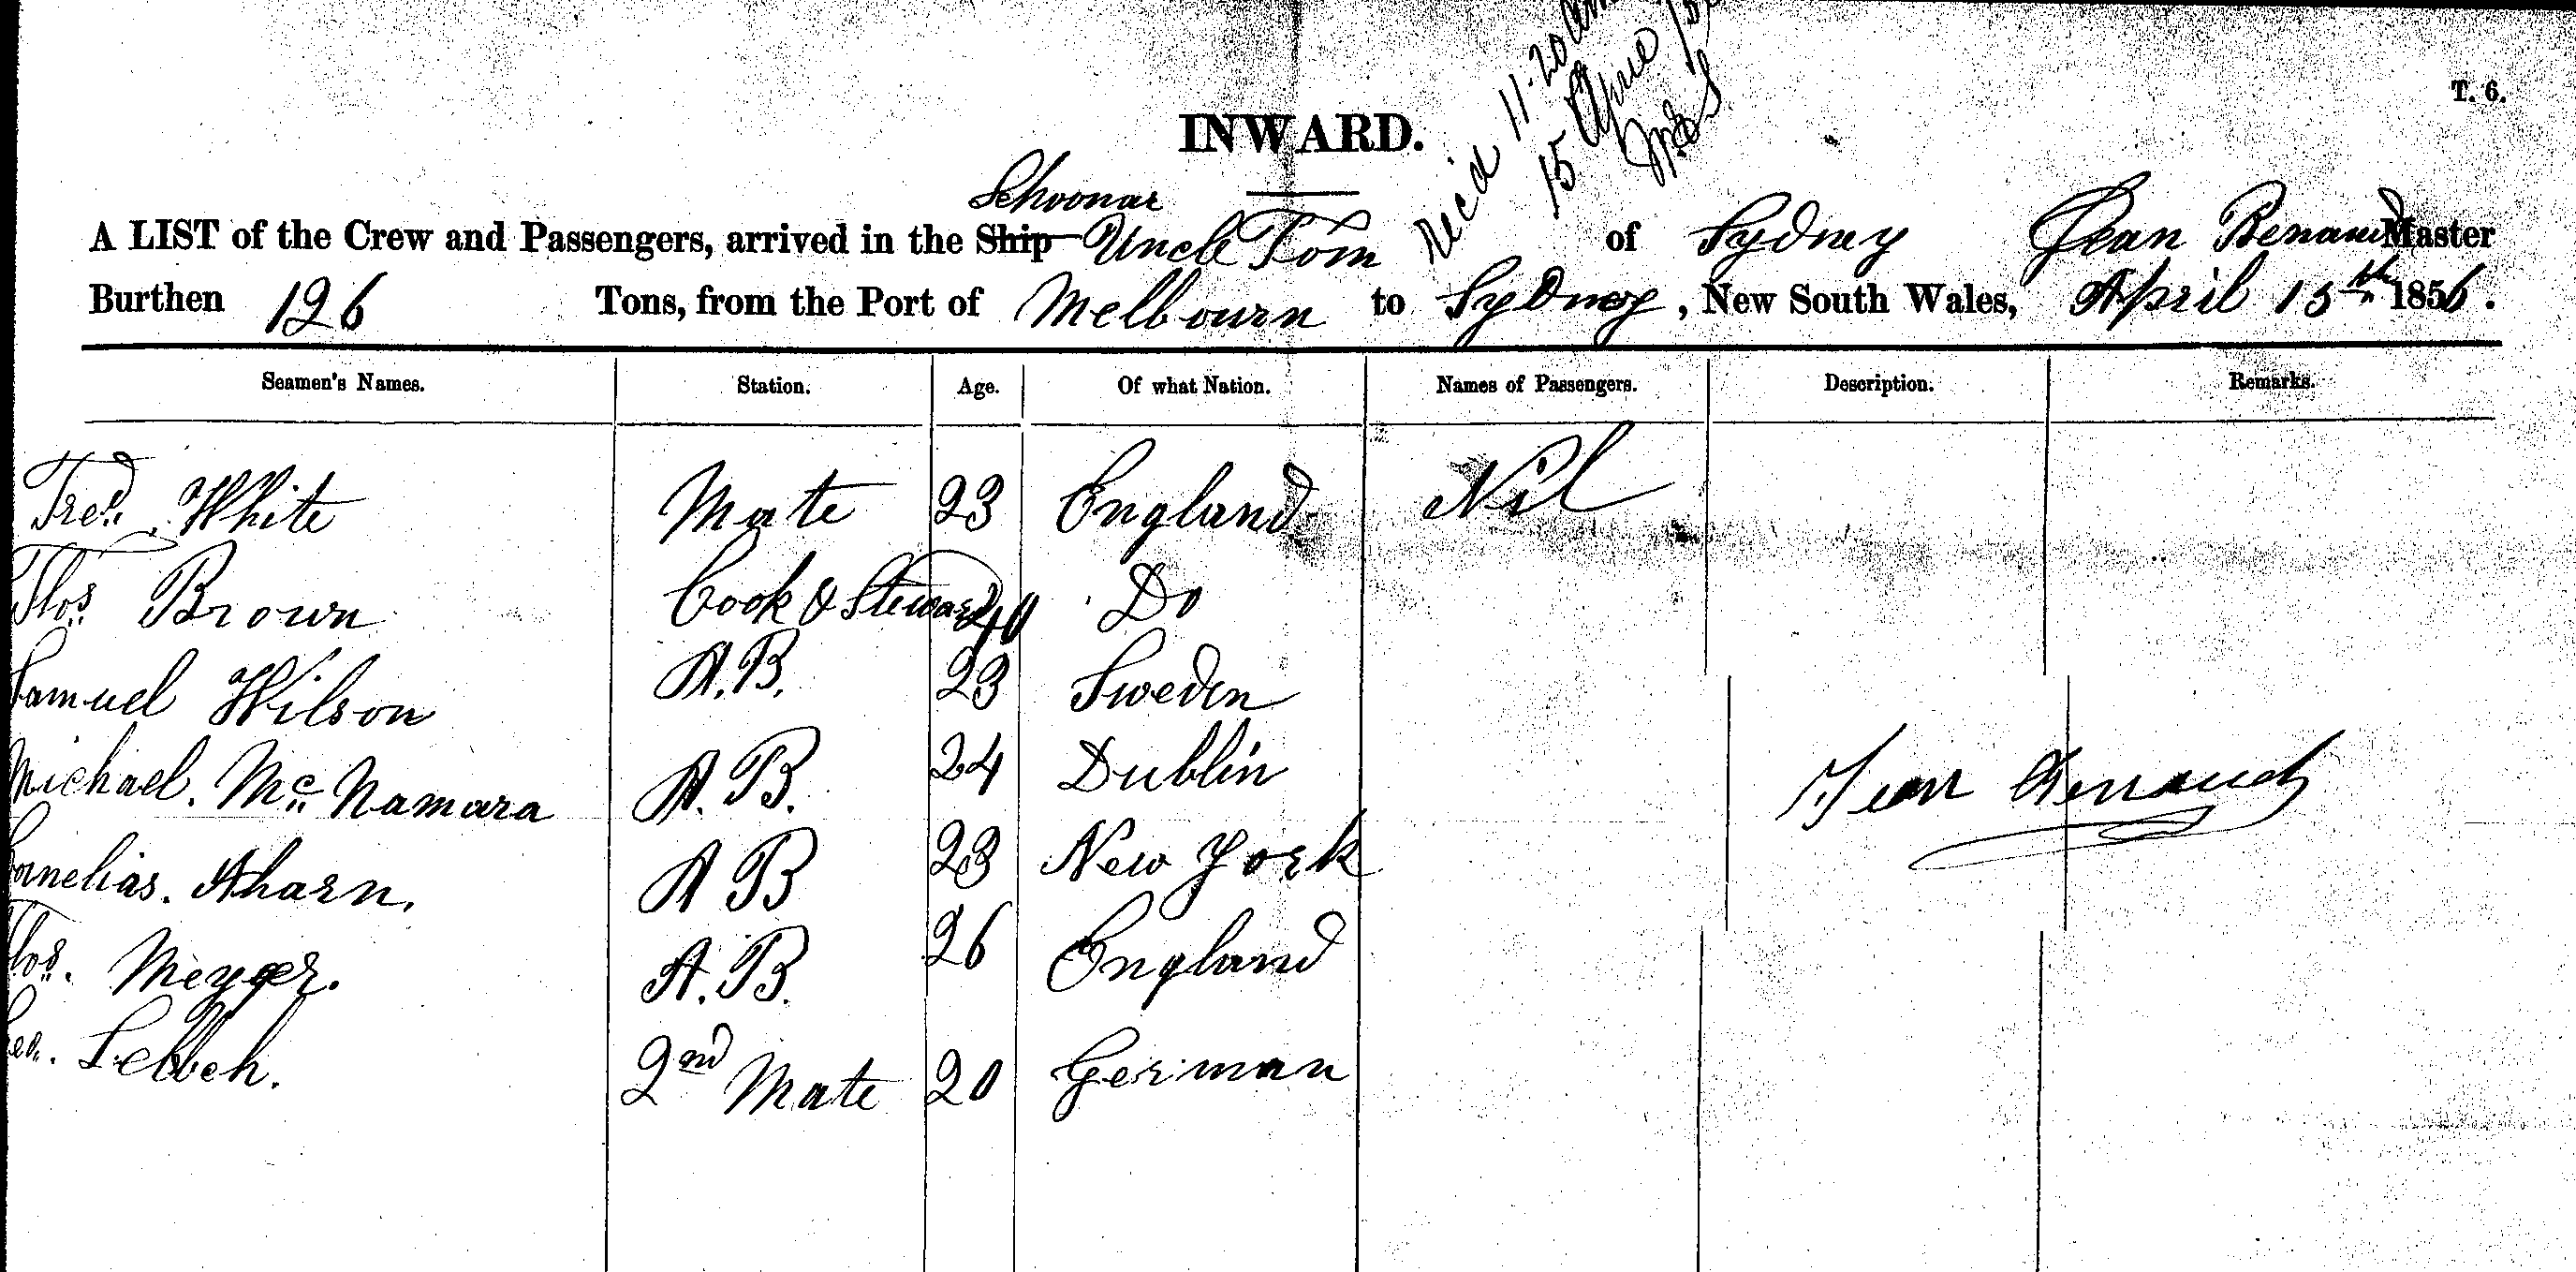 T. 6.
Recd 11.20 am
15 April
INWARD.
Schoonar
A LIST of the Crew and Passengers, arrived in the Ship Uncle Tom of Sydney Jean Renaud Master
Burthen 126 Tons, from the Port of Melbourn to Sydney, New South Wales, April 15th 1856.
Seamen's Names. Station. Age. Of what Nation. Names of Passengers. Description. Remarks.
Fred. White Mate 23 England Nil
Thos. Brown Cook & Steward 40 Do
Samuel Wilson A.B. 23 Sweden
Michael. Mc Namara A.B. 24 Dublin
Cornelias. Aharn. A B 23 New York
Thos. Meyer. A.B. 26 England
2nd Mate 20 German
Jean Renaud